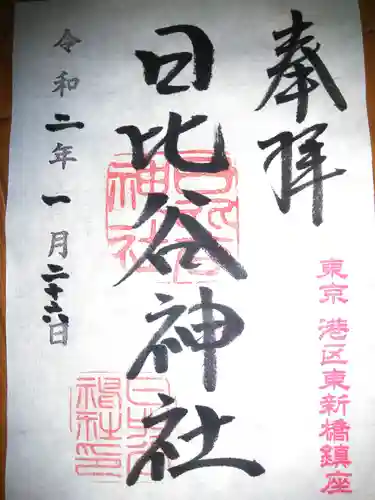 奉拝
東京 港区東新橋鎮座
日比谷神社
日比谷神社
令和二年一月二十六日